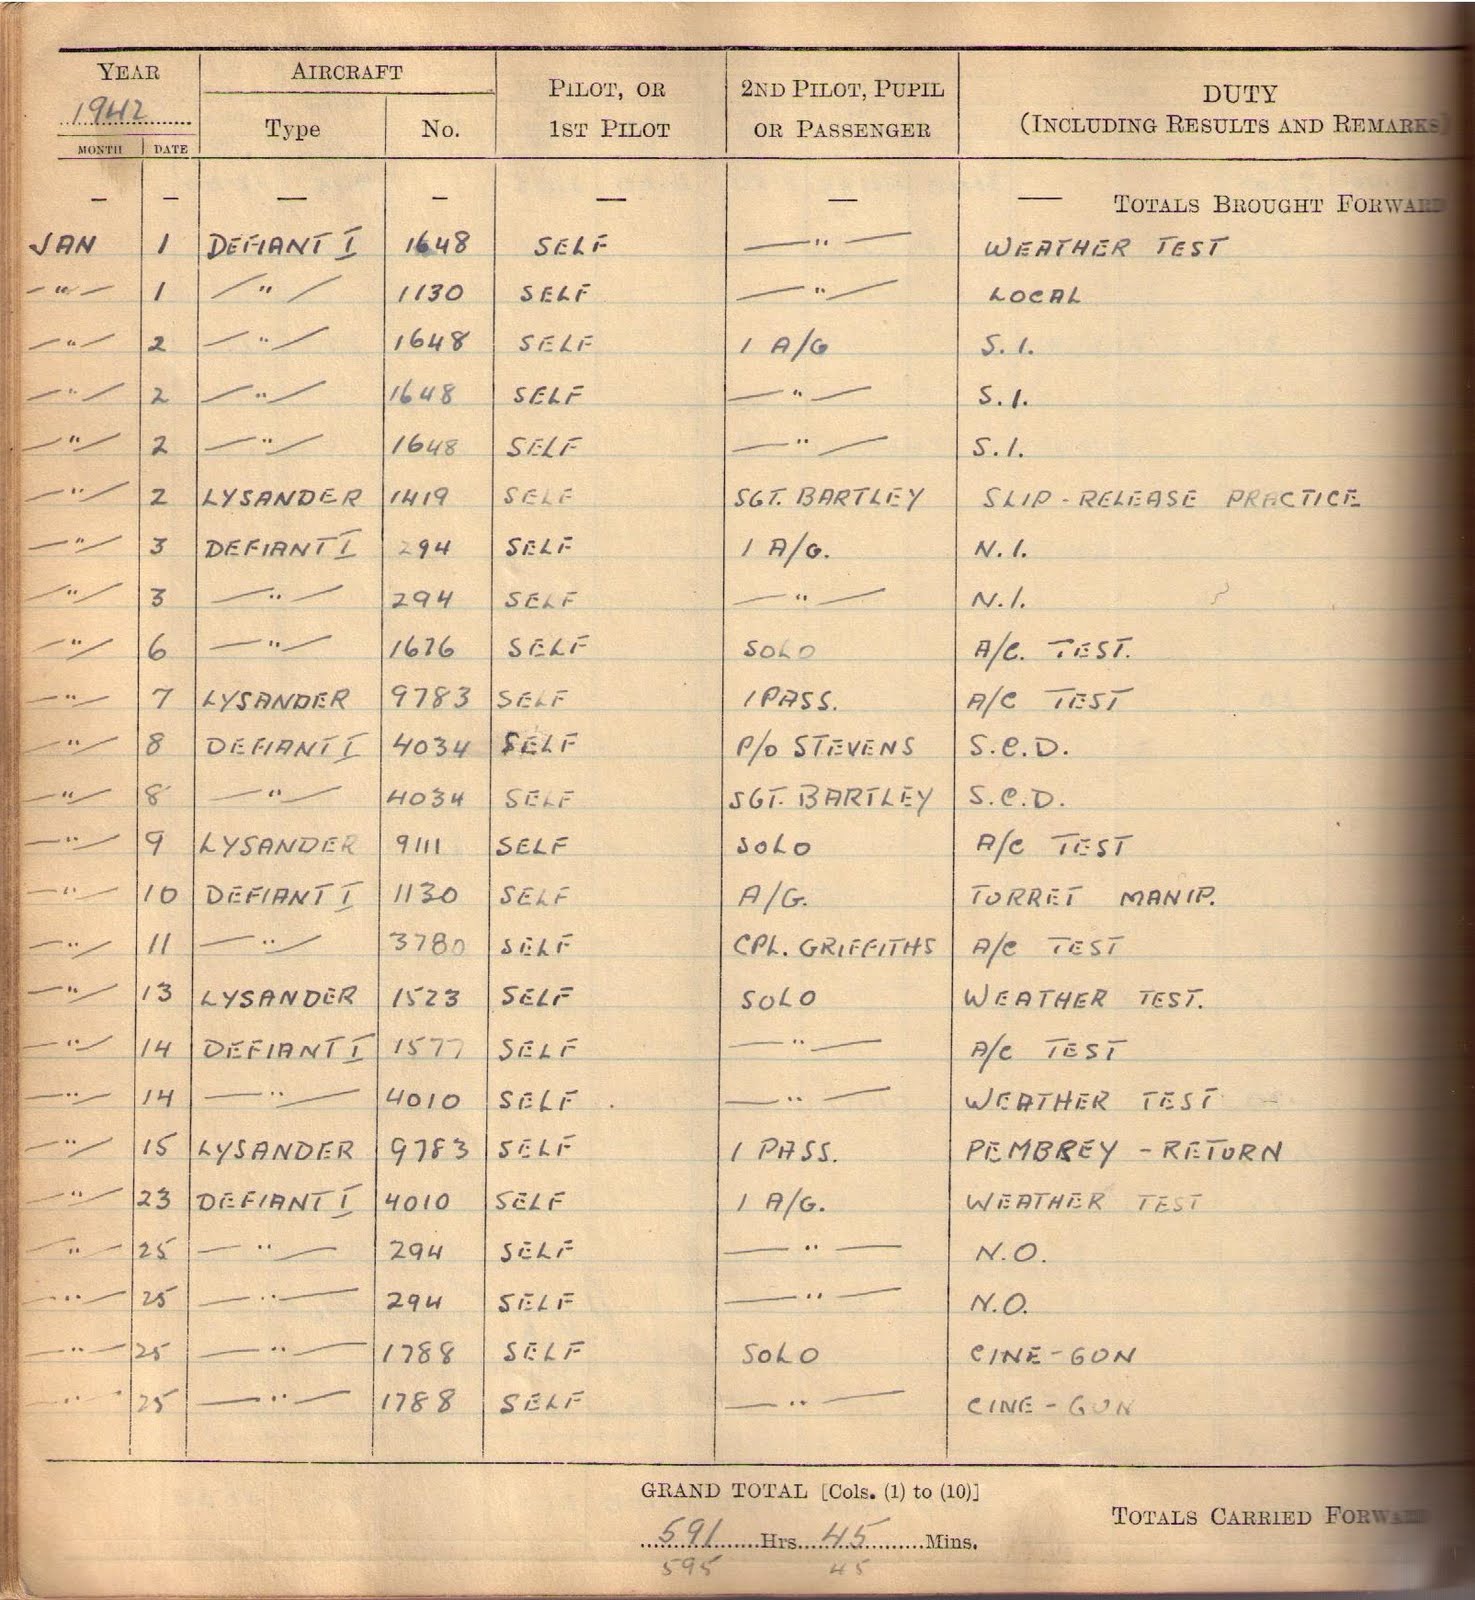 YEAR AIRCRAFT PILOT, OR 1ST PILOT 2ND PILOT, PUPIL OR PASSENGER DUTY (INCLUDING RESULTS AND REMARKS)
1942 Type No.
MONTH DATE
— — — — — — — TOTALS BROUGHT FORWARD
JAN 1 DEFIANT I 1648 SELF —"— WEATHER TEST
—"— 1 —"— 1130 SELF —"— LOCAL
—"— 2 —"— 1648 SELF 1 A/G S.I.
—"— 2 —"— 1648 SELF —"— S.I.
—"— 2 —"— 1648 SELF —"— S.I.
—"— 2 LYSANDER 1419 SELF SGT. BARTLEY SLIP-RELEASE PRACTICE
—"— 3 DEFIANT I 294 SELF 1 A/G. N.I.
—"— 3 —"— 294 SELF —"— N.I.
—"— 6 —"— 1676 SELF SOLO A/C. TEST.
—"— 7 LYSANDER 9783 SELF 1 PASS. A/C TEST
—"— 8 DEFIANT I 4034 SELF P/O STEVENS S.C.D.
—"— 8 —"— 4034 SELF SGT. BARTLEY S.C.D.
—"— 9 LYSANDER 9111 SELF SOLO A/C TEST
—"— 10 DEFIANT I 1130 SELF A/G. TURRET MANIP.
—"— 11 —"— 3780 SELF CPL. GRIFFITHS A/C TEST
—"— 13 LYSANDER 1523 SELF SOLO WEATHER TEST.
—"— 14 DEFIANT I 1577 SELF —"— A/C TEST
—"— 14 —"— 4010 SELF —"— WEATHER TEST
—"— 15 LYSANDER 9783 SELF 1 PASS. PEMBREY - RETURN
—"— 23 DEFIANT I 4010 SELF 1 A/G. WEATHER TEST
—"— 25 —"— 294 SELF —"— N.O.
—"— 25 —"— 294 SELF —"— N.O.
—"— 25 —"— 1788 SELF SOLO CINE-GUN
—"— 25 —"— 1788 SELF —"— CINE-GUN
GRAND TOTAL [Cols. (1) to (10)]
TOTALS CARRIED FORWARD
591 Hrs. 45 Mins.
595 45